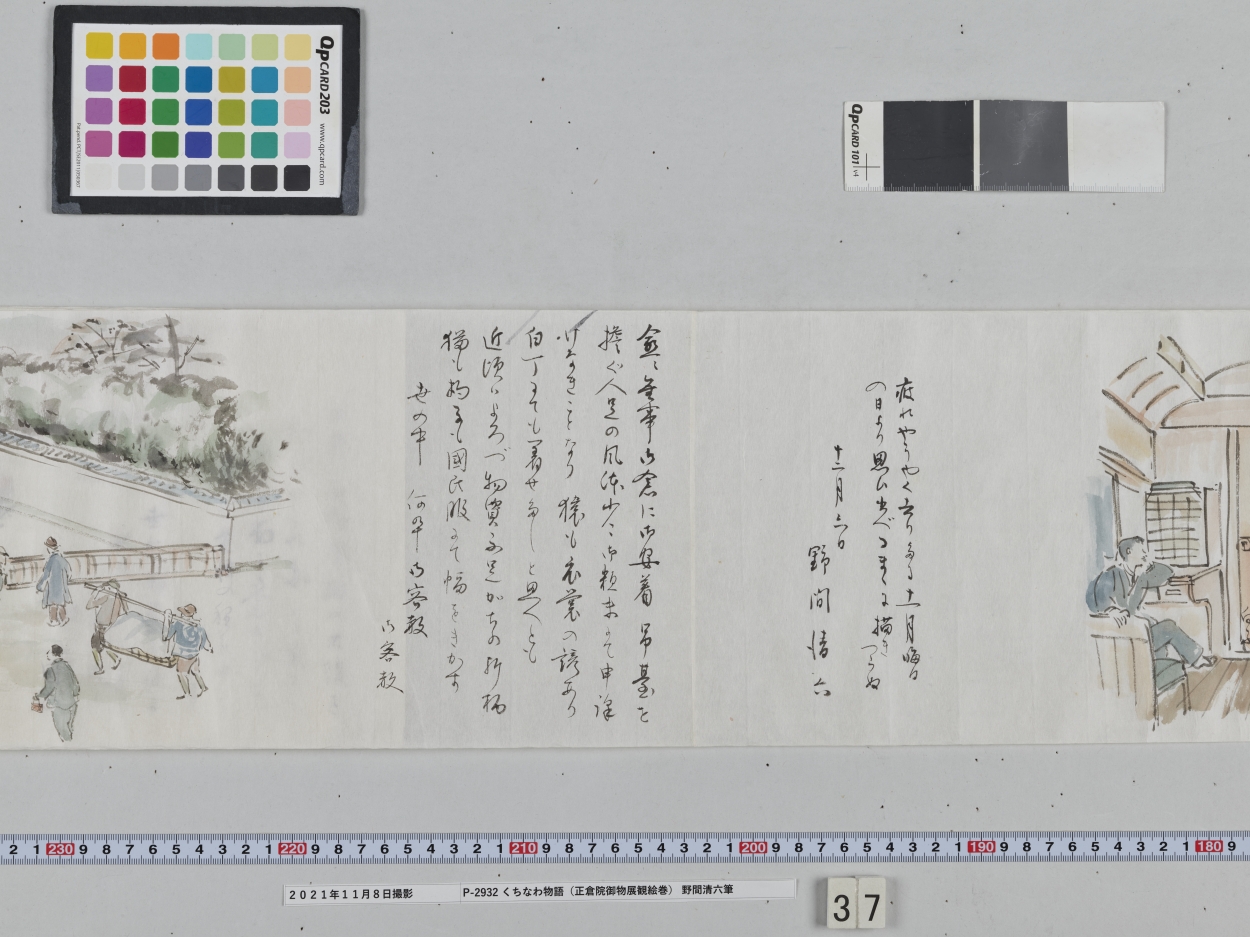 QPCARD 203
www.qpcard.com
QPCARD 101 v4
疲れやうやく至りぬる十一月晦日
の日より思ひ出べるまゝに描きつらぬ
十二月六日
野間清六
愈々無事御倉に御安着 吊台を
担ぐ人足の風体少々御粗末にて申譯
けなきことなり 猿も衣裳の諺あり
白丁にても着せ度しと思へども
近頃はよろづ物資不足がちの折柄
猫も杓子も國民服にて幅をきかす
世の中 何卒御容赦
御容赦
2 1 230 9 8 7 6 5 4 3 2 1 220 9 8 7 6 5 4 3 2 1 210 9 8 7 6 5 4 3 2 1 200 9 8 7 6 5 4 3 2 1 190 9 8 7 6 5 4 3 2 1 180 9
2021年11月8日撮影
P-2932 くちなわ物語（正倉院御物展観絵巻） 野間清六筆
37